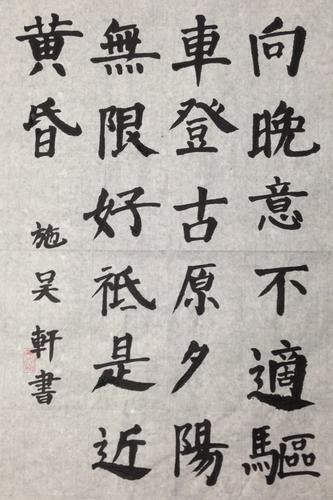 向晚意不適驅
車登古原夕陽
無限好祗是近
黄昏
施吴軒書